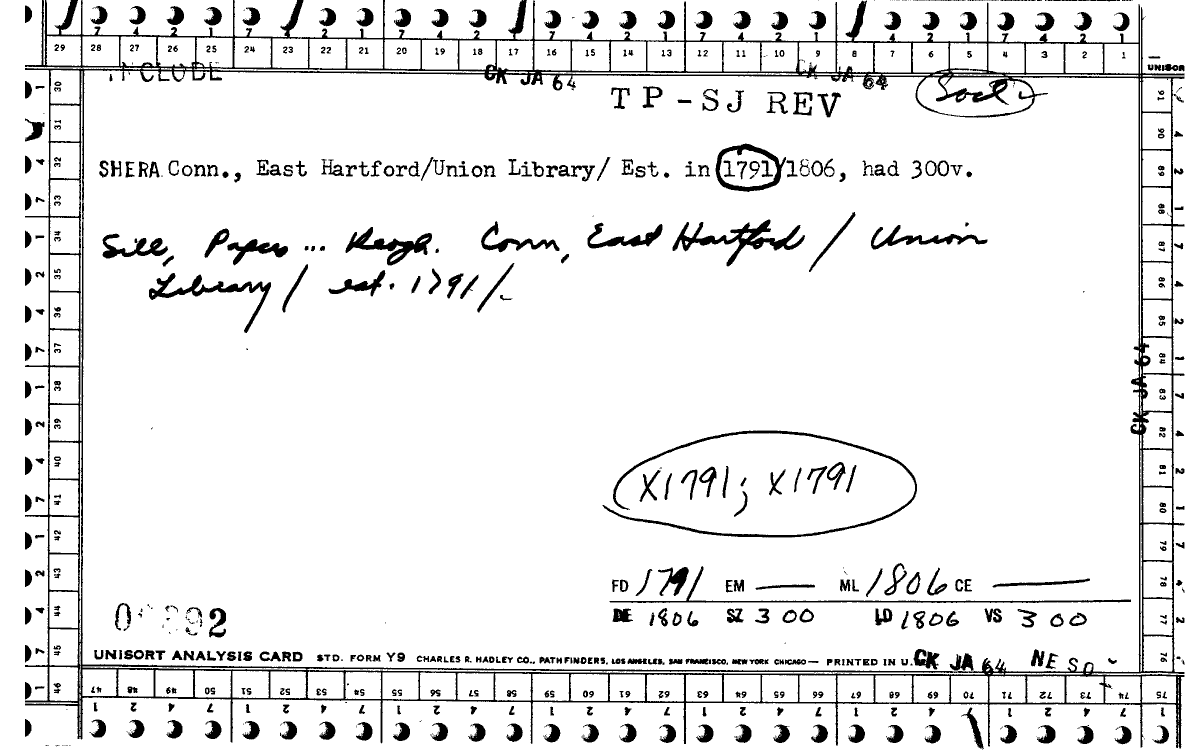 7 4 2 1 7 4 2 1 7 4 2 1 7 4 2 1 7 4 2 1 7 4 2 1 7 4 2 1
29 28 27 26 25 24 23 22 21 20 19 18 17 16 15 14 13 12 11 10 9 8 7 6 5 4 3 2 1
INCLUDE CK JA 64 CK JA 64 UNISOR
TP-SJ REV
SHERA Conn., East Hartford/Union Library/ Est. in 1791/1806, had 300v.
Sill, Papers ... Keogh. Conn, East Hartford / Union
Library / est. 1791/-
CK JA 64
X1791; X1791
FD 1791 EM — ML 1806 CE —
DE 1806 SZ 300 LD 1806 VS 300
892
UNISORT ANALYSIS CARD STD. FORM Y9 CHARLES R. HADLEY CO., PATHFINDERS, LOS ANGELES, SAN FRANCISCO, NEW YORK CHICAGO — PRINTED IN U. CK JA 64 NE SO
30 31 32 33 34 35 36 37 38 39 40 41 42 43 44 45 46
91 90 89 88 87 86 85 84 83 82 81 80 79 78 77 76
47 48 49 50 51 52 53 54 55 56 57 58 59 60 61 62 63 64 65 66 67 68 69 70 71 72 73 74 75
1 2 4 7 1 2 4 7 1 2 4 7 1 2 4 7 1 2 4 7 1 2 4 7 1 2 4 7 1